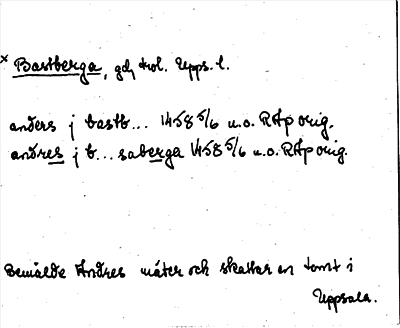 * Bastberga, gd, trol. Upps. l.
anders j bastb... 1458 5/6 u.o. RAp orig.
andres j b... saberga 1458 5/6 u.o. RAp orig.
Bemälde Andres mäter och skattar en tomt i
Uppsala.